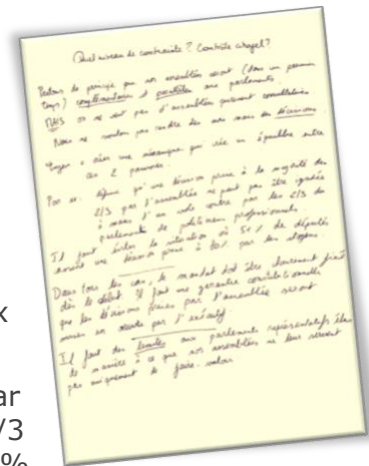 Quel niveau de contrainte ? Contrôle citoyen ?
Partons du principe que nos assemblées seront (dans un premier
temps) complémentaires et                aux parlements.
MAIS on ne veut pas d'assemblées purement consultatives.
Nous ne voulons pas rendre des avis mais des décisions.
créer une mécanique qui crée un équilibre entre
ces 2 pouvoirs.
qu'une décision prise à la majorité des
2/3 par l'assemblée ne peut pas être
à moins d'un vote contre par les 2/3 du
parlement de politiciens professionnels
Il faut éviter la situation où 50% de députés
une décision prise à 80% par les citoyens.
Dans tous les cas, le mandat doit être clairement fixé
dès le début. Il faut une garantie constitutionnelle
que les décisions prises par l'assemblée seront
mises en œuvre par l'exécutif.
Il faut des limites aux parlements représentatifs élus
de manière à ce que nos assemblées ne leur servent
pas uniquement de faire-valoir.
x
ar
/3
%